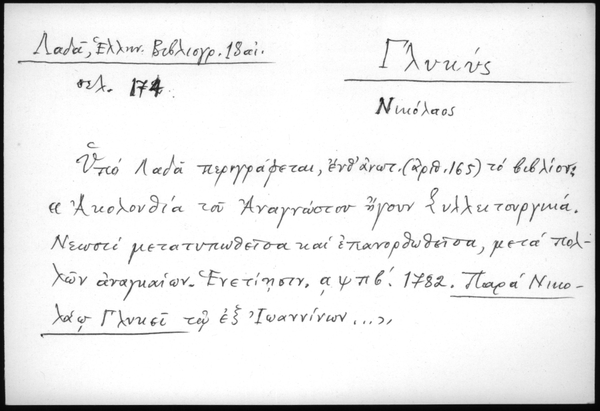 Λαδᾶ, Ἑλλην. Βιβλιογρ. 18 αἰ.
σελ. 174.
Γλυκύς
Νικόλαος
Ὑπό Λαδᾶ περιγράφεται, ἐνθ' ἀνωτ. (ἀριθ. 165) τό βιβλίον:
« Ἀκολουθία τοῦ Ἀναγνώστου ἤγουν Συλλειτουργικά.
Νεωστί μετατυπωθεῖσα καί ἐπανορθωθεῖσα, μετά πολ-
λῶν ἀναγκαίων. Ἐνετίησιν. αψπβ'. 1782. Παρά Νικο-
λάῳ Γλυκεῖ τῷ ἐξ Ἰωαννίνων ...»,